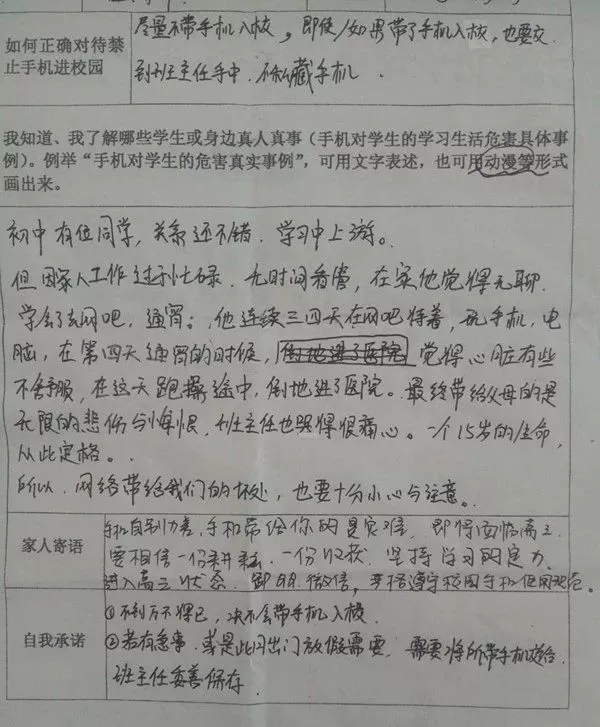 如何正确对待禁止手机进校园
尽量不带手机入校，即使/如果带了手机入校，也要交
到班主任手中，不私藏手机．
我知道、我了解哪些学生或身边真人真事（手机对学生的学习生活危害具体事
例）。例举“手机对学生的危害真实事例”，可用文字表述，也可用动漫等形式
画出来。
初中有位同学，关系还不错．学习中上游。
但因家人工作过于忙碌．无时间看管，在家他觉得无聊．
学会了去网吧，通宵；他连续三四天在网吧待着，玩手机，电
脑，在第四天通宵的时候，倒地进了医院 觉得心脏有些
不舒服，在这天跑操途中，倒地进了医院。最终带给父母的是
无限的悲伤与悔恨．班主任也哭得很痛心。一个15岁的生命，
从此定格。
所以．网络带给我们的坏处，也要十分小心与注意。
家人寄语
手机自制力差，手机带给你的是灾难．即将面临高三．
要相信一份耕耘．一份收获．坚持学习的定力．
进入高三状态．卸QQ．微信，严格遵守校园手机使用规范。
自我承诺
①不到万不得已，决不会带手机入校．
②若有急事．或是出门放假需要．需要将所带手机送给
班主任妥善保存．